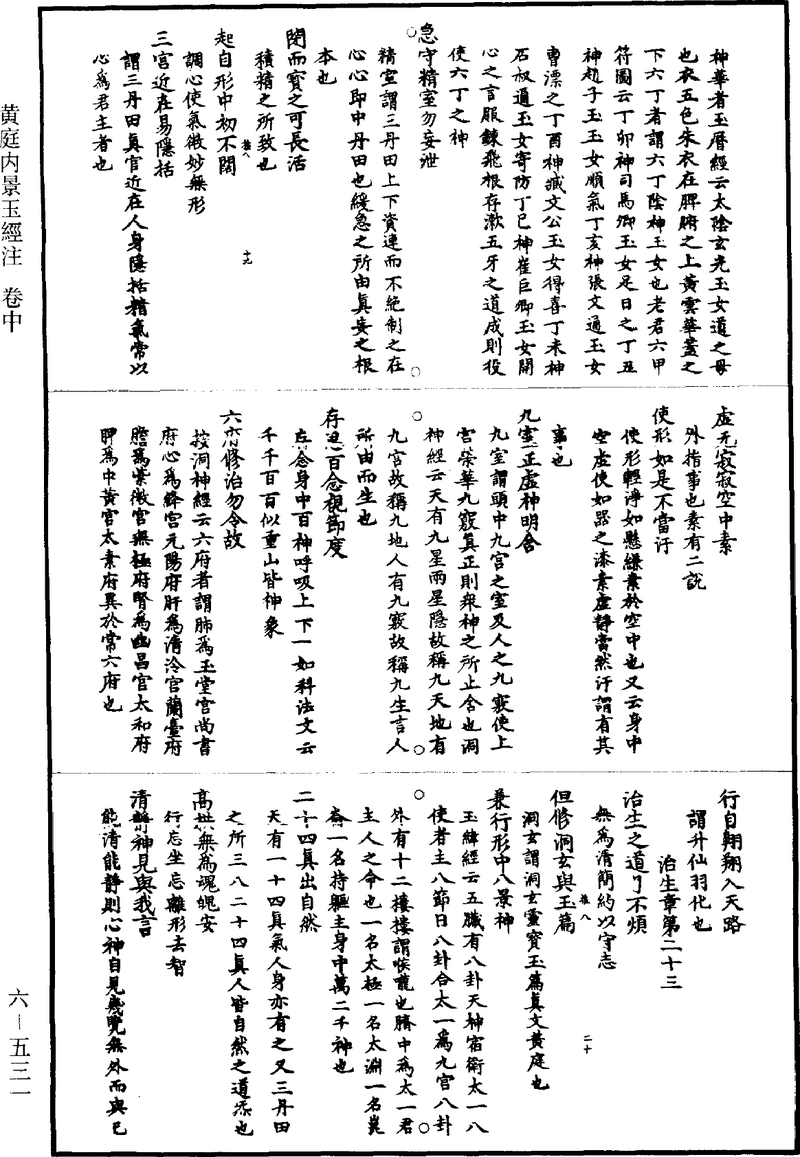 黄庭内景玉經注 卷中
神華者玉曆經云太陰玄光玉女道之母
也衣五色朱衣在脾腑之上黃雲華蓋之
下六丁者謂六丁陰神玉女也老君六甲
符圖云丁卯神司馬卿玉女足日之丁丑
神趙子玉玉女順氣丁亥神張文通玉女
曹漂之丁酉神臧文公玉女得喜丁未神
石叔通玉女寄防丁巳神崔巨卿玉女開
心之言服鍊飛根存漱五牙之道成則役
使六丁之神
急守精室勿妄泄
精室謂三丹田上下資連而不絶制之在
心心即中丹田也緩急之所由真妄之根
本也
閉而寳之可長活
積精之所致也
起自形中初不闊
調心使氣微妙無形
三宫近在易隱括
謂三丹田真官近在人身隱括精氣常以
心為君主者也
虚无寂寂空中素
外指事也素有二說
使形如是不當汙
使形輕淨如懸縑素於空中也又云身中
空虚使如器之漆素虚静當然汙謂有其
事也
九室正虚神明舍
九室謂頭中九宫之室及人之九竅使上
宫榮華九竅真正則衆神之所止舍也洞
神經云天有九星兩星隱故稱九天地有
九宫故稱九地人有九竅故稱九生言人
所由而生也
存思百念視節度
存念身中百神呼吸上下一如科法文云
千千百百似重山皆神象
六府修治勿令故
按洞神經云六府者謂肺為玉堂宫尚書
府心為絳宫元陽府肝為清泠宫蘭臺府
膽為紫微宫無極府腎為幽昌宫太和府
脾為中黄宫太素府異於常六府也
行自翱翔入天路
謂升仙羽化也
治生章第二十三
治生之道了不煩
無為清簡約以守志
但修洞玄與玉篇
洞玄謂洞玄靈寳玉篇真文黄庭也
兼行形中八景神
玉緯經云五臓有八卦天神宿衛太一八
使者主八節日八卦合太一為九宫八卦
外有十二樓樓謂喉嚨也臍中為太一君
主人之命也一名太極一名太淵一名崑
崙一名持軀主身中萬二千神也
二十四真出自然
天有一十四真氣人身亦有之又三丹田
之所三八二十四真人皆自然之道炁也
高拱無為魂魄安
行忘坐忘離形去智
清静神見與我言
能清能静則心神自見機覽無外而與已
六－五三一